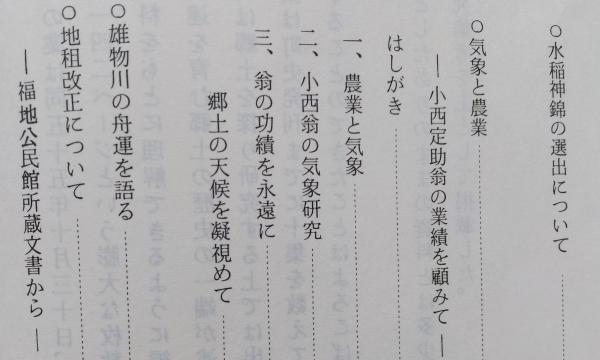 ○水稲神錦の選出について
○気象と農業
―小西定助翁の業績を顧みて―
はしがき
一、農業と気象
二、小西翁の気象研究
三、翁の功績を永遠に
郷土の天候を凝視めて
○雄物川の舟運を語る
○地租改正について
―福地公民館所蔵文書から―